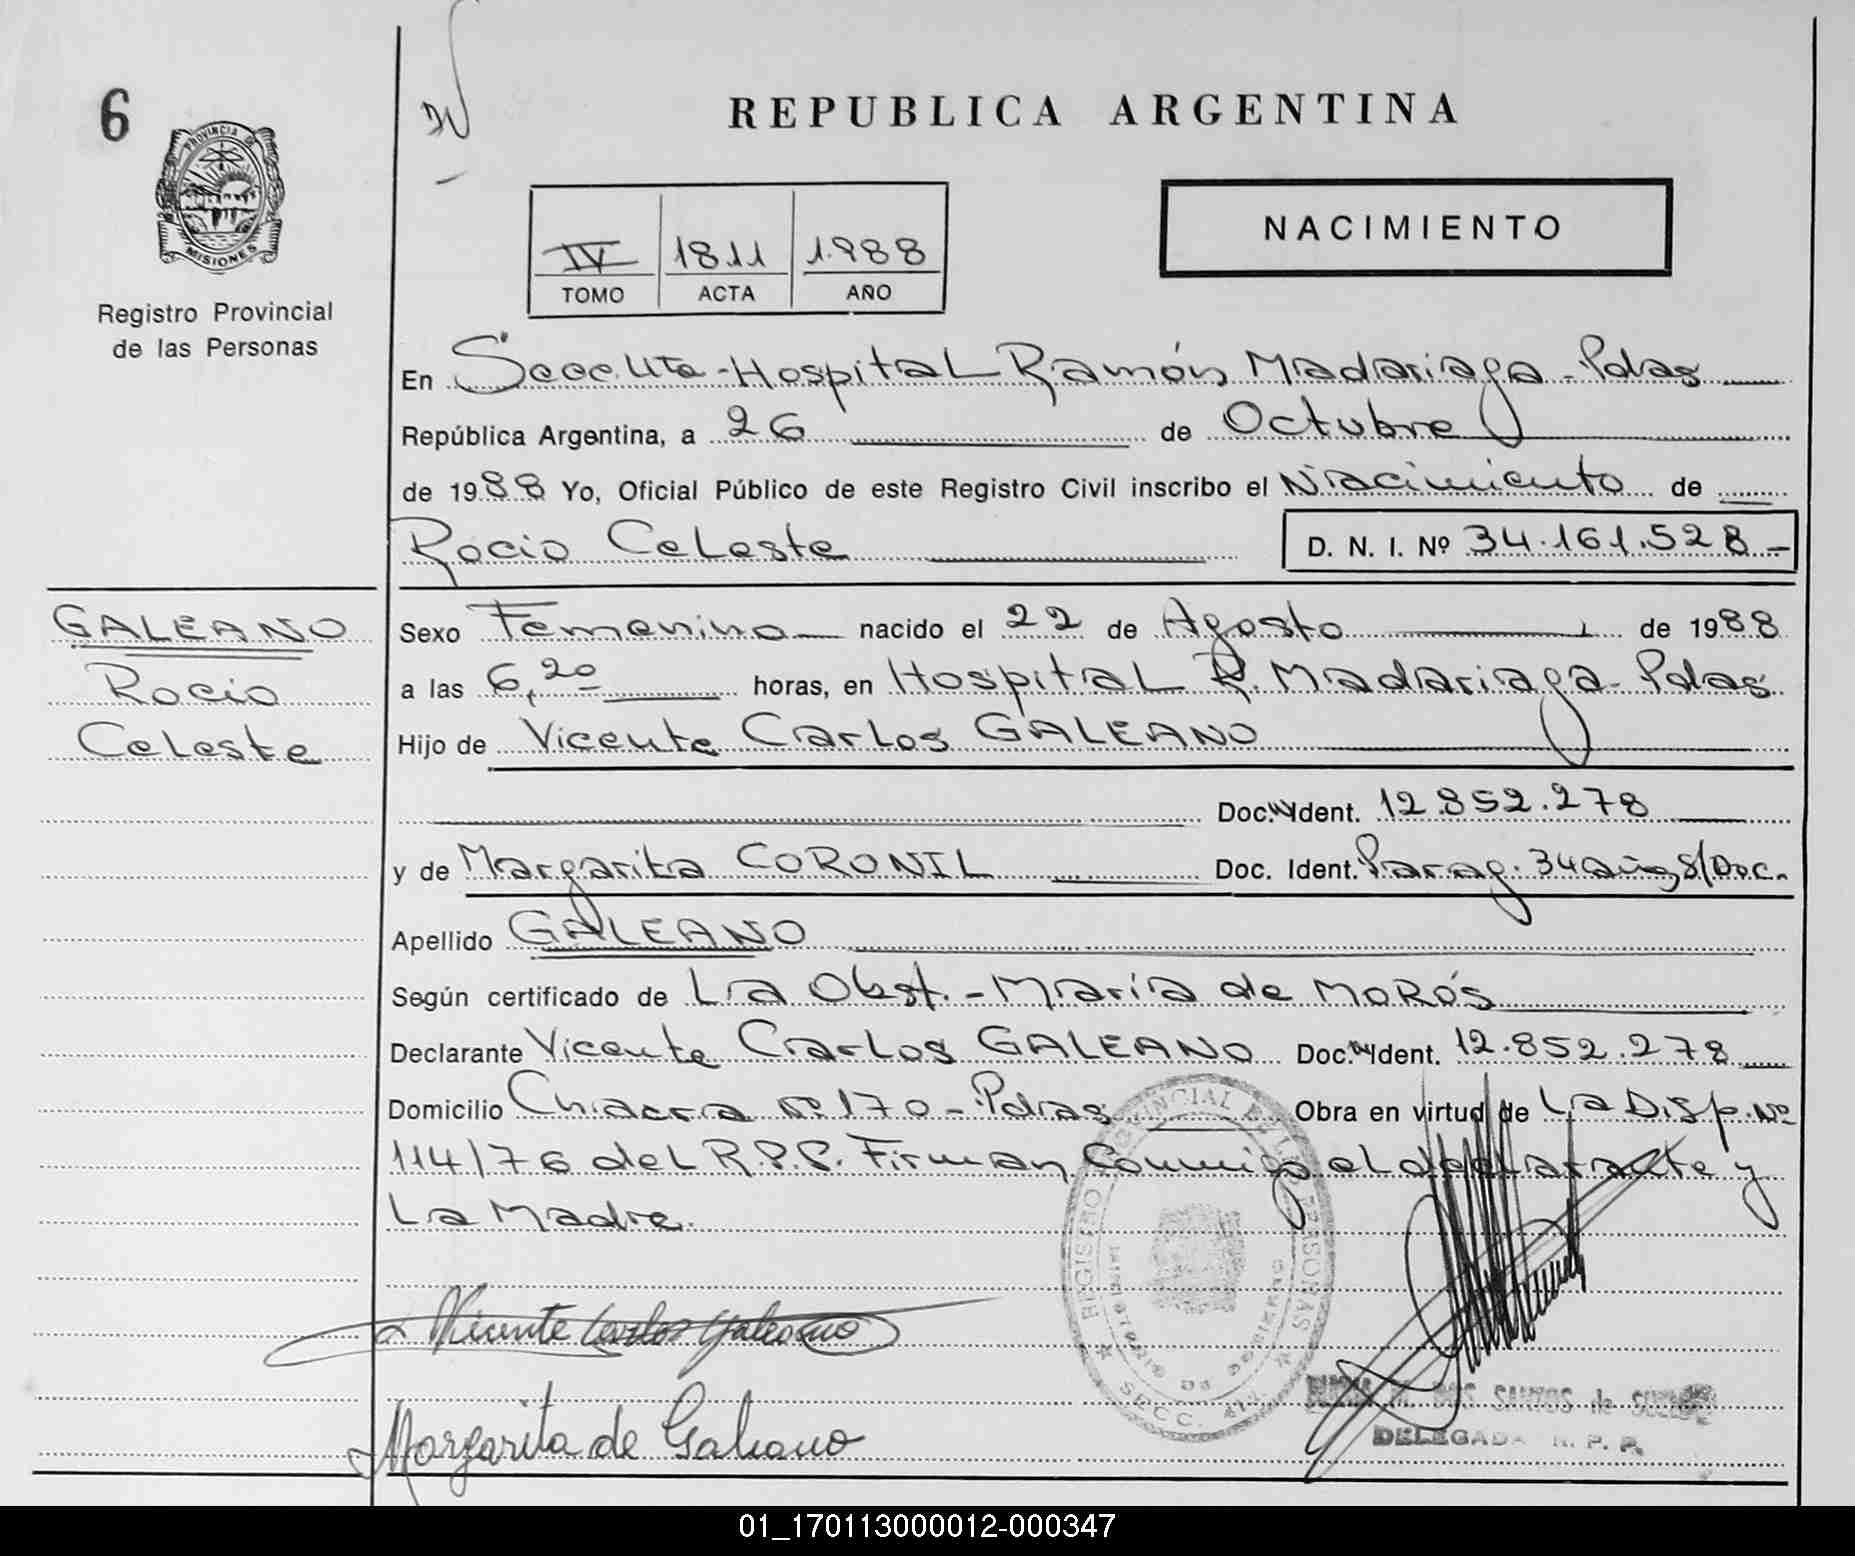 6
REPUBLICA ARGENTINA
PROVINCIA DE
MISIONES
Registro Provincial
de las Personas
NACIMIENTO
IV 1811 1.988
TOMO ACTA AÑO
En Secc. 4ta - Hospital Ramón Madariaga - Pdas
República Argentina, a 26 de Octubre
de 1988 Yo, Oficial Público de este Registro Civil inscribo el Nacimiento de
Rocio Celeste D. N. I. Nº 34.161.528 -
GALEANO
Rocio
Celeste
Sexo Femenino nacido el 22 de Agosto de 1988
a las 6,20 horas, en Hospital R. Madariaga - Pdas
Hijo de Vicente Carlos GALEANO
Doc. Ident. 12.852.278
y de Margarita CORONIL Doc. Ident. Parag. 34 años S/Doc.
Apellido GALEANO
Según certificado de La Obst. - María de MORÓS
Declarante Vicente Carlos GALEANO Doc. Ident. 12.852.278
Domicilio Chacra Nº 170 - Pdas Obra en virtud de La Disp. Nº
114/76 del R.P.P. Firman Conmigo el declarante y
La Madre.
REGISTRO PROVINCIAL DE LAS PERSONAS
SECC. 4ta.
Vicente Carlos Galeano
Margarita de Galeano
DOS SANTOS de
DELEGADA R. P. P.
01_170113000012-000347